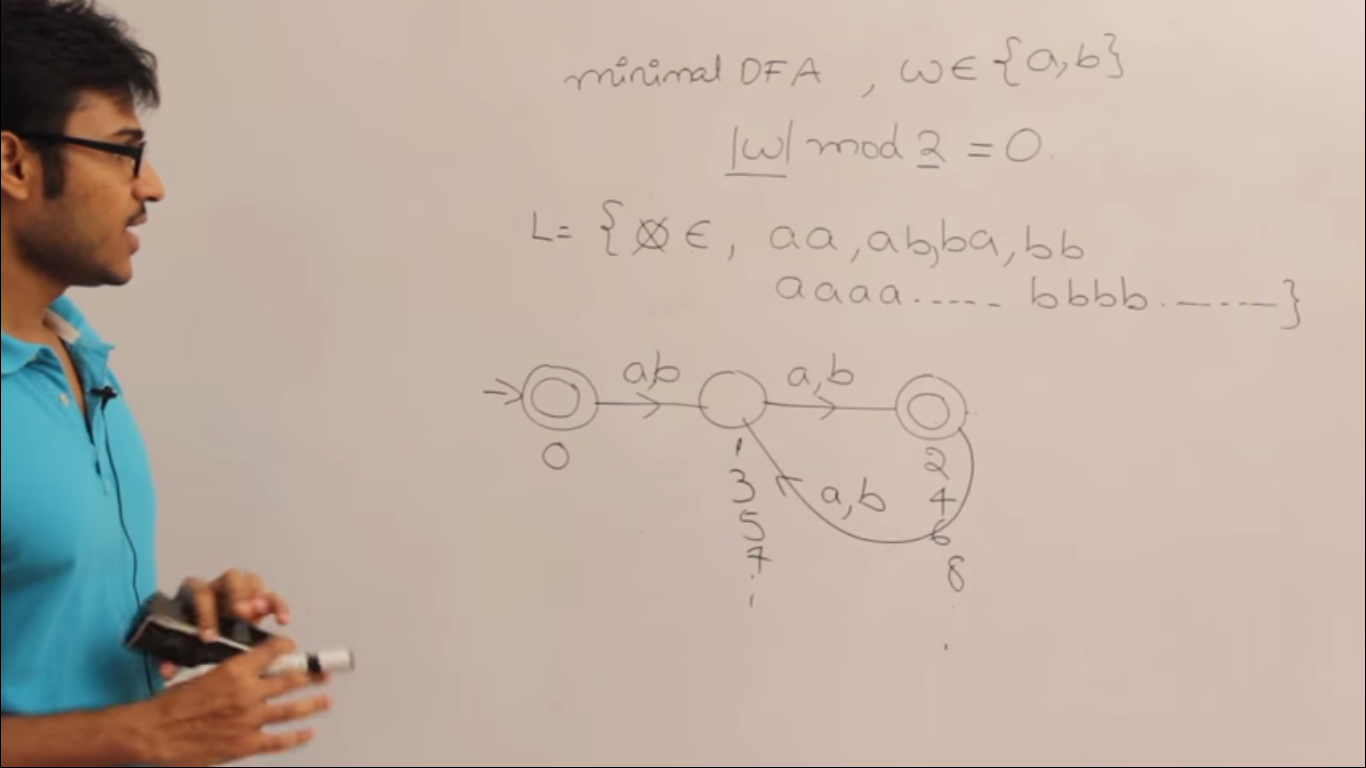 minimal DFA , ω ∈ {a,b}
|ω| mod 2 = 0.
L= { ϵ, aa,ab,ba,bb
aaaa..... bbbb.-----}
a,b a,b
0 1 2
3 a,b 4
5 6
7 8